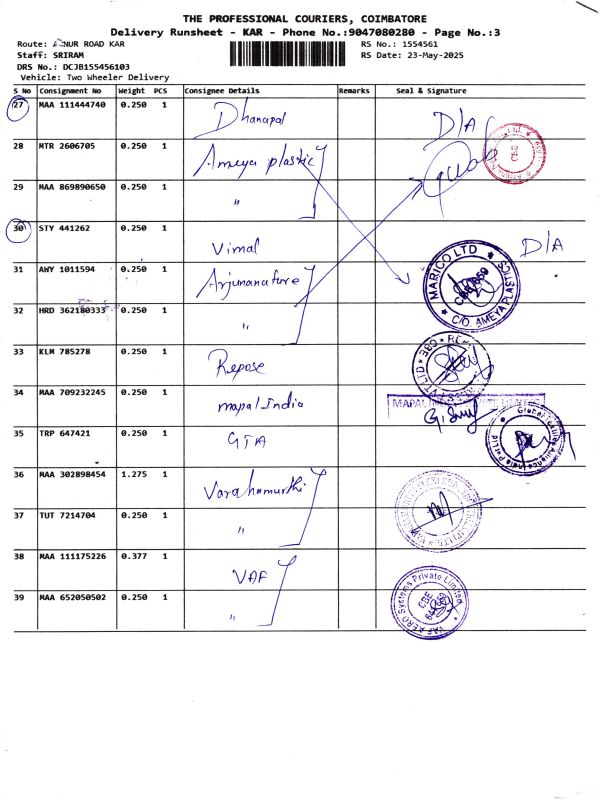 THE PROFESSIONAL COURIERS, COIMBATORE
Delivery Runsheet - KAR - Phone No.:9047080280 - Page No.:3
ROAD KAR
Route:
Staff: SRIRAM
DRS No.: DCJB155456103
Vehicle: Two Wheeler Delivery
RS No.: 1554561
RS Date: 23-May-2025
S No Consignment No Weight PCS Consignee Details Remarks Seal & Signature
27 MAA 111444740 0.250 1 Dhanapal D/A
28 MTR 2606705 0.250 1 Ameya plastic
29 MAA 869890650 0.250 1 "
30 STY 441262 0.250 1 Vimal D/A
31 AWY 1011594 0.250 1
MARICO LTD
C/O. AMEYA PLASTICS
32 HRD 362180333 0.250 1 "
33 KLM 785278 0.250 1 Repose
34 MAA 709232245 0.250 1 mapal India
35 TRP 647421 0.250 1 GTA
36 MAA 302898454 1.275 1 Varahamurthi
37 TUT 7214704 0.250 1 "
38 MAA 111175226 0.377 1 VAF
39 MAA 652050502 0.250 1 "
VAF AERO Systems Private Limited
CBE